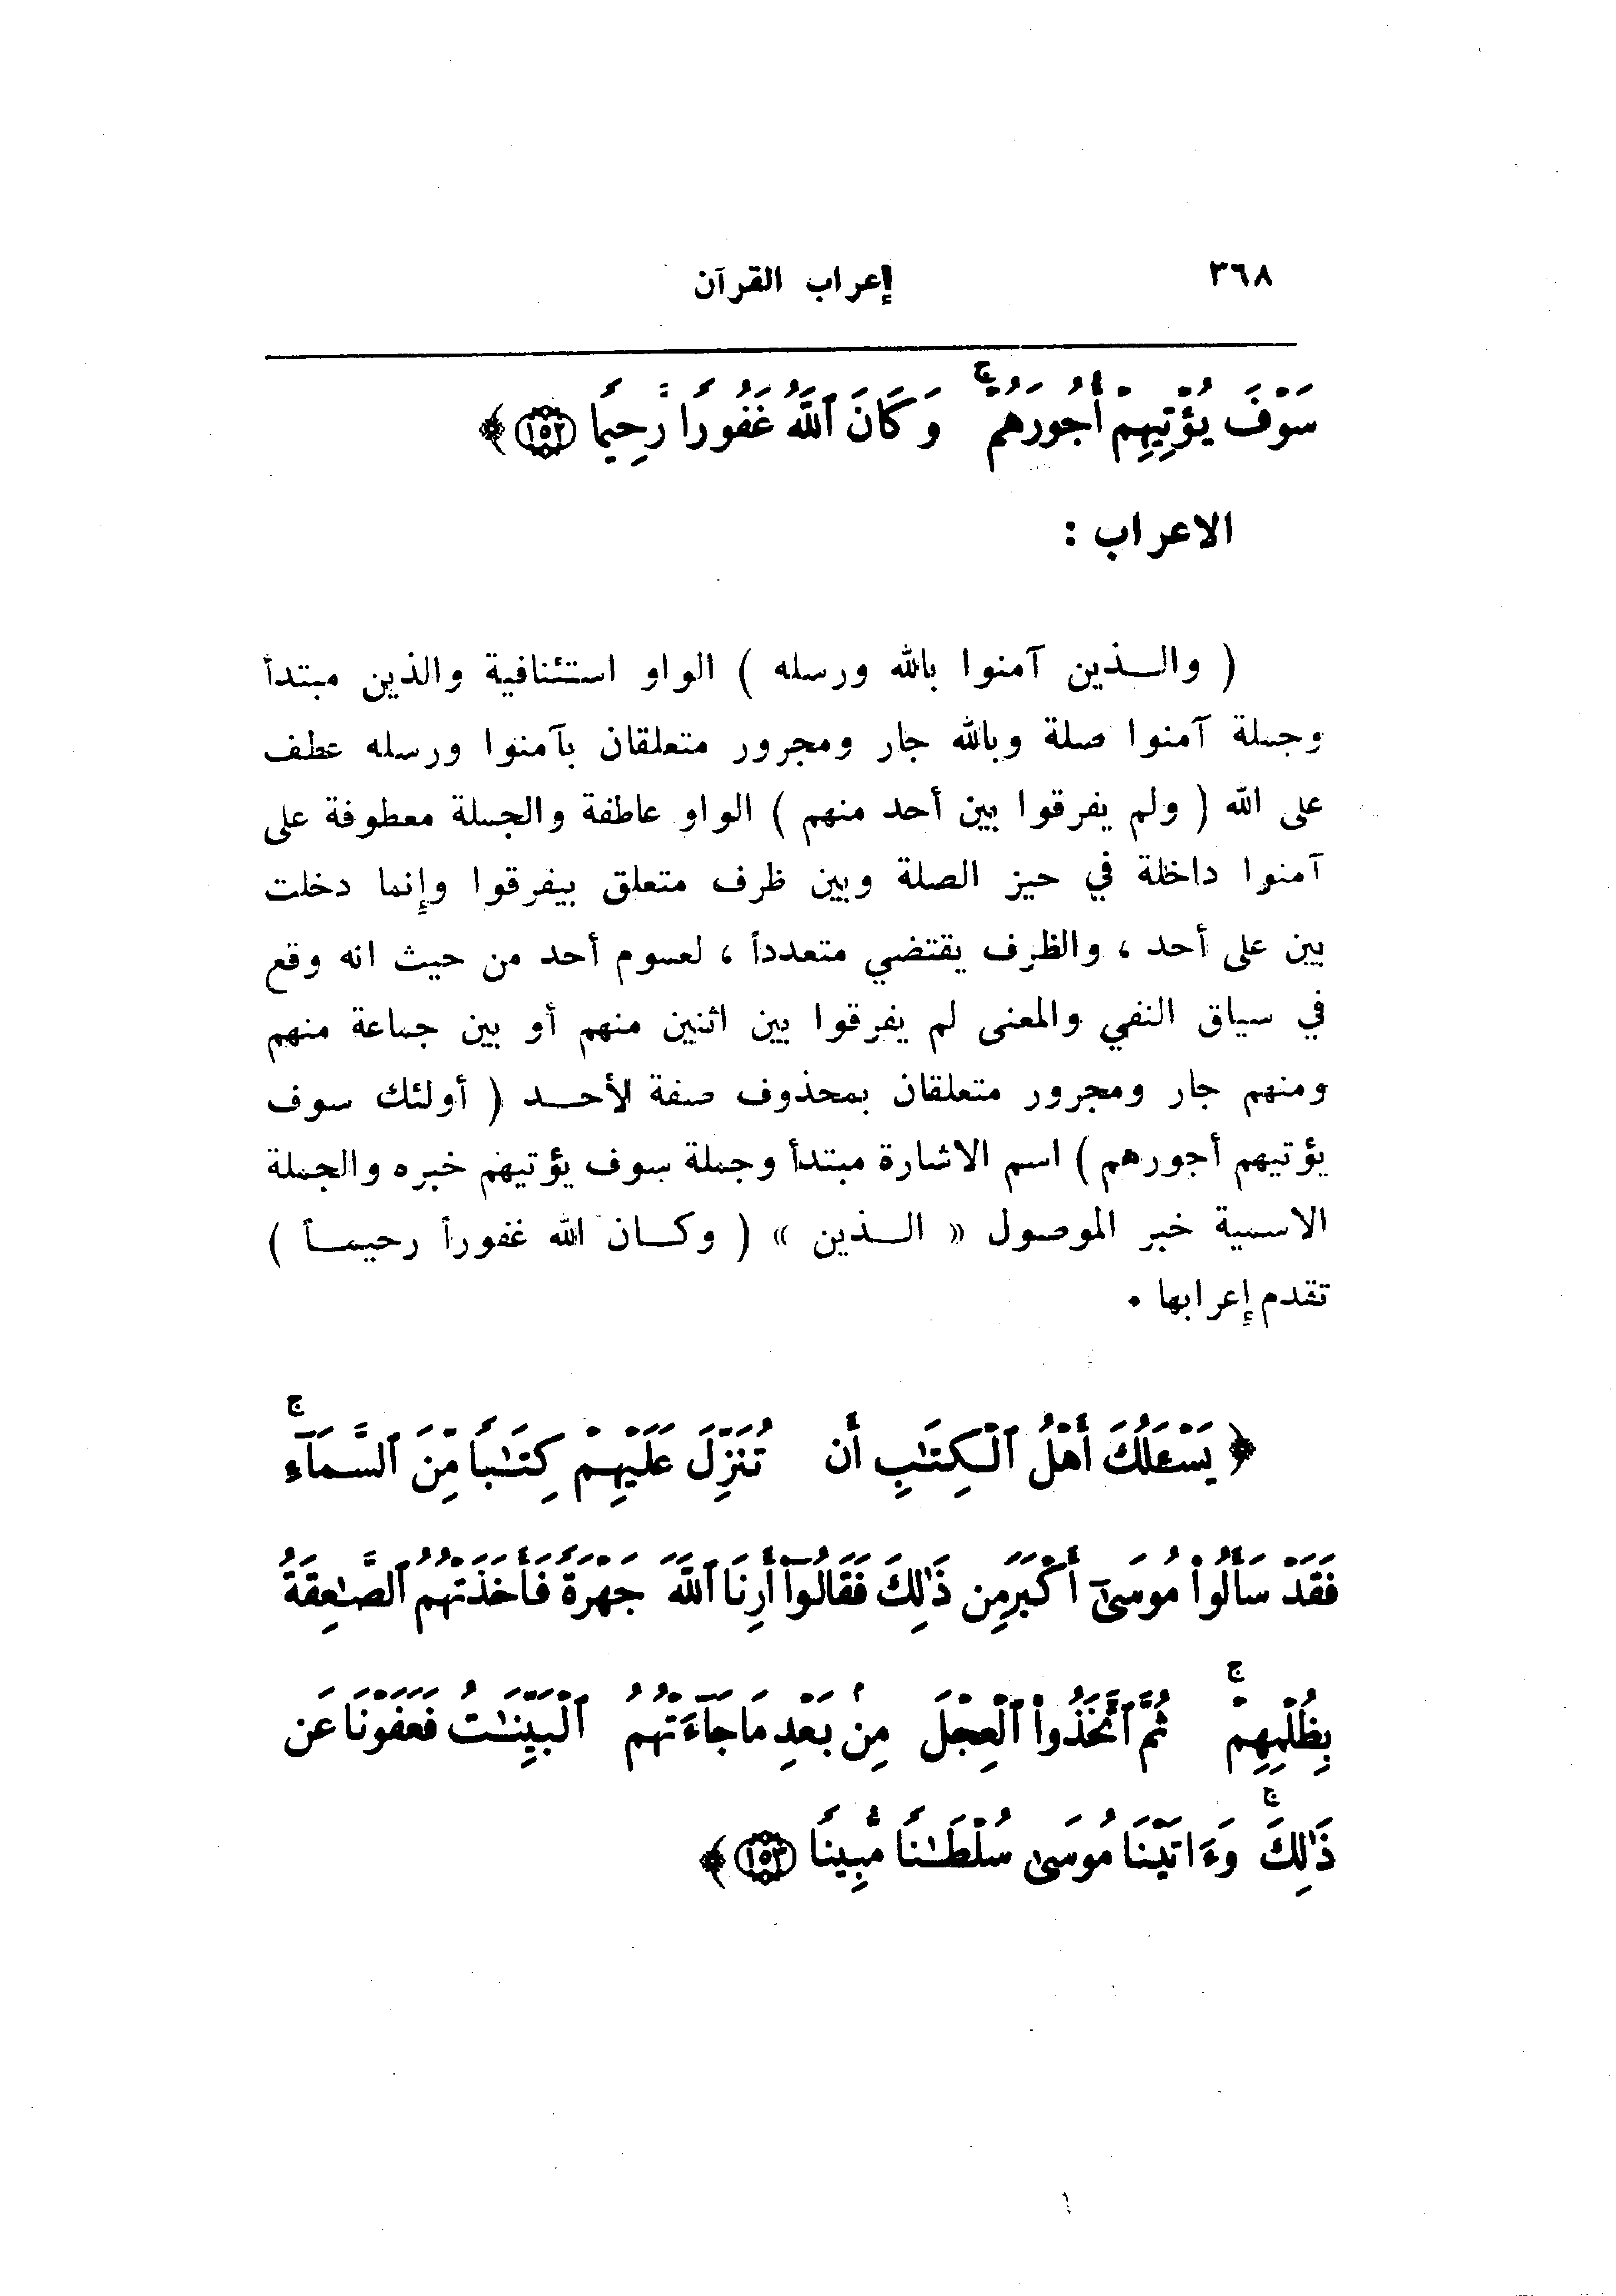 ٣٦٨ إعراب القرآن
سَوْفَ يُؤْتِيهِمْ أُجُورَهُمْ ۚ وَكَانَ ٱللَّهُ غَفُورًا رَّحِيمًا ﴿١٥٢﴾
الاعراب :
( والـــذين آمنوا بالله ورسله ) الواو استئنافية والذين مبتدأ
وجملة آمنوا صلة وبالله جار ومجرور متعلقان بآمنوا ورسله عطف
على الله ( ولم يفرقوا بين أحد منهم ) الواو عاطفة والجملة معطوفة على
آمنوا داخلة في حيز الصلة وبين ظرف متعلق بيفرقوا وإنما دخلت
بين على أحد ، والظرف يقتضي متعدداً ، لعموم أحد من حيث انه وقع
في سياق النفي والمعنى لم يفرقوا بين اثنين منهم أو بين جماعة منهم
ومنهم جار ومجرور متعلقان بمحذوف صفة لأحـــد ( أولئك سوف
يؤتيهم أجورهم ) اسم الاشارة مبتدأ وجملة سوف يؤتيهم خبره والجملة
الاسمية خبر الموصول « الـــذين » ( وكـــان الله غفوراً رحيمـــاً )
تقدم إعرابها .
﴿ يَسْـَٔلُكَ أَهْلُ ٱلْكِتَـٰبِ أَن تُنَزِّلَ عَلَيْهِمْ كِتَـٰبًا مِّنَ ٱلسَّمَآءِ ۚ
فَقَدْ سَأَلُوا۟ مُوسَىٰٓ أَكْبَرَ مِن ذَٰلِكَ فَقَالُوٓا۟ أَرِنَا ٱللَّهَ جَهْرَةً فَأَخَذَتْهُمُ ٱلصَّـٰعِقَةُ
بِظُلْمِهِمْ ۚ ثُمَّ ٱتَّخَذُوا۟ ٱلْعِجْلَ مِنۢ بَعْدِ مَا جَآءَتْهُمُ ٱلْبَيِّنَـٰتُ فَعَفَوْنَا عَن
ذَٰلِكَ ۚ وَءَاتَيْنَا مُوسَىٰ سُلْطَـٰنًا مُّبِينًا ﴿١٥٣﴾